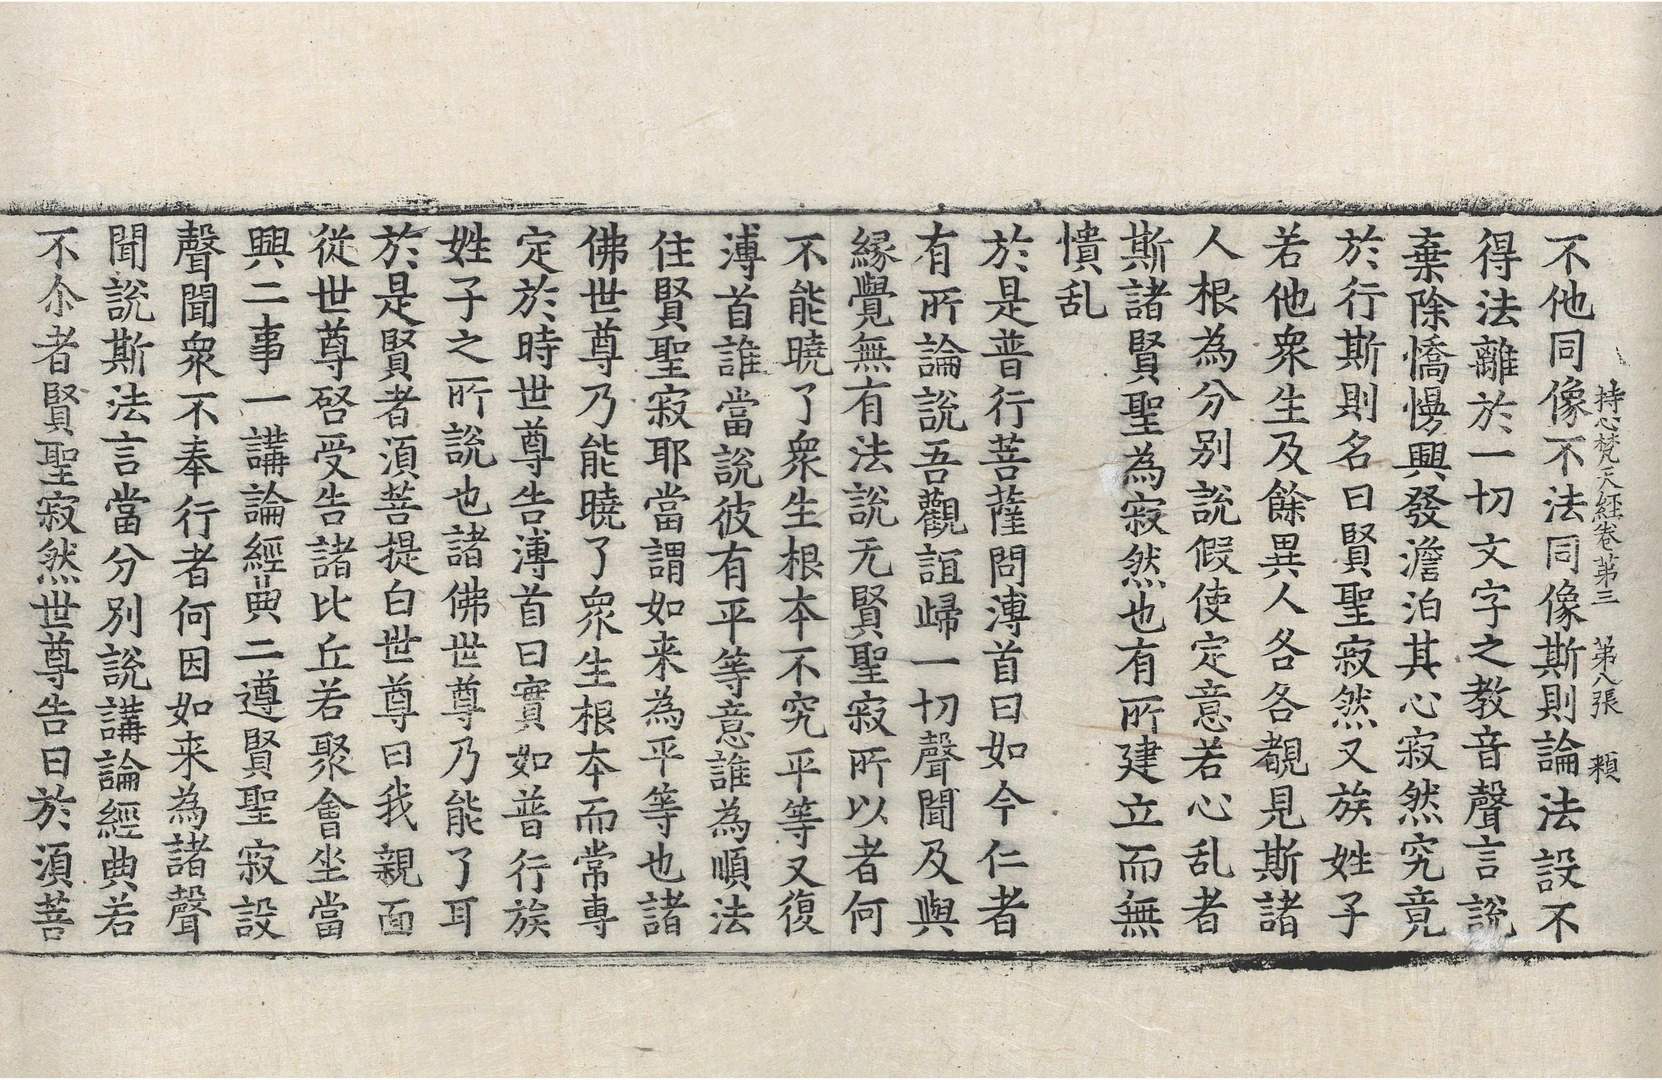 持心梵天經卷第三　第八張　類
不他同像不法同像斯則論法設不
得法離於一切文字之教音聲言說
棄除憍慢興發澹泊其心寂然究竟
於行斯則名曰賢聖寂然又族姓子
若他衆生及餘異人各各覩見斯諸
人根為分别說假使定意若心乱者
斯諸賢聖為寂然也有所建立而無
憒乱
於是普行菩薩問溥首曰如今仁者
有所論說吾觀誼歸一切聲聞及與
緣覺無有法說无賢聖寂所以者何
不能曉了衆生根本不究平等又復
溥首誰當說彼有平等意誰為順法
住賢聖寂耶當謂如来為平等也諸
佛世尊乃能曉了衆生根本而常專
定於時世尊告溥首曰實如普行族
姓子之所說也諸佛世尊乃能了耳
於是賢者湏菩提白世尊曰我親面
從世尊啓受告諸比丘若聚會坐當
興二事一講論經典二遵賢聖寂設
聲聞衆不奉行者何因如来為諸聲
聞說斯法言當分別說講論經典若
不尒者賢聖寂然世尊告曰於湏菩